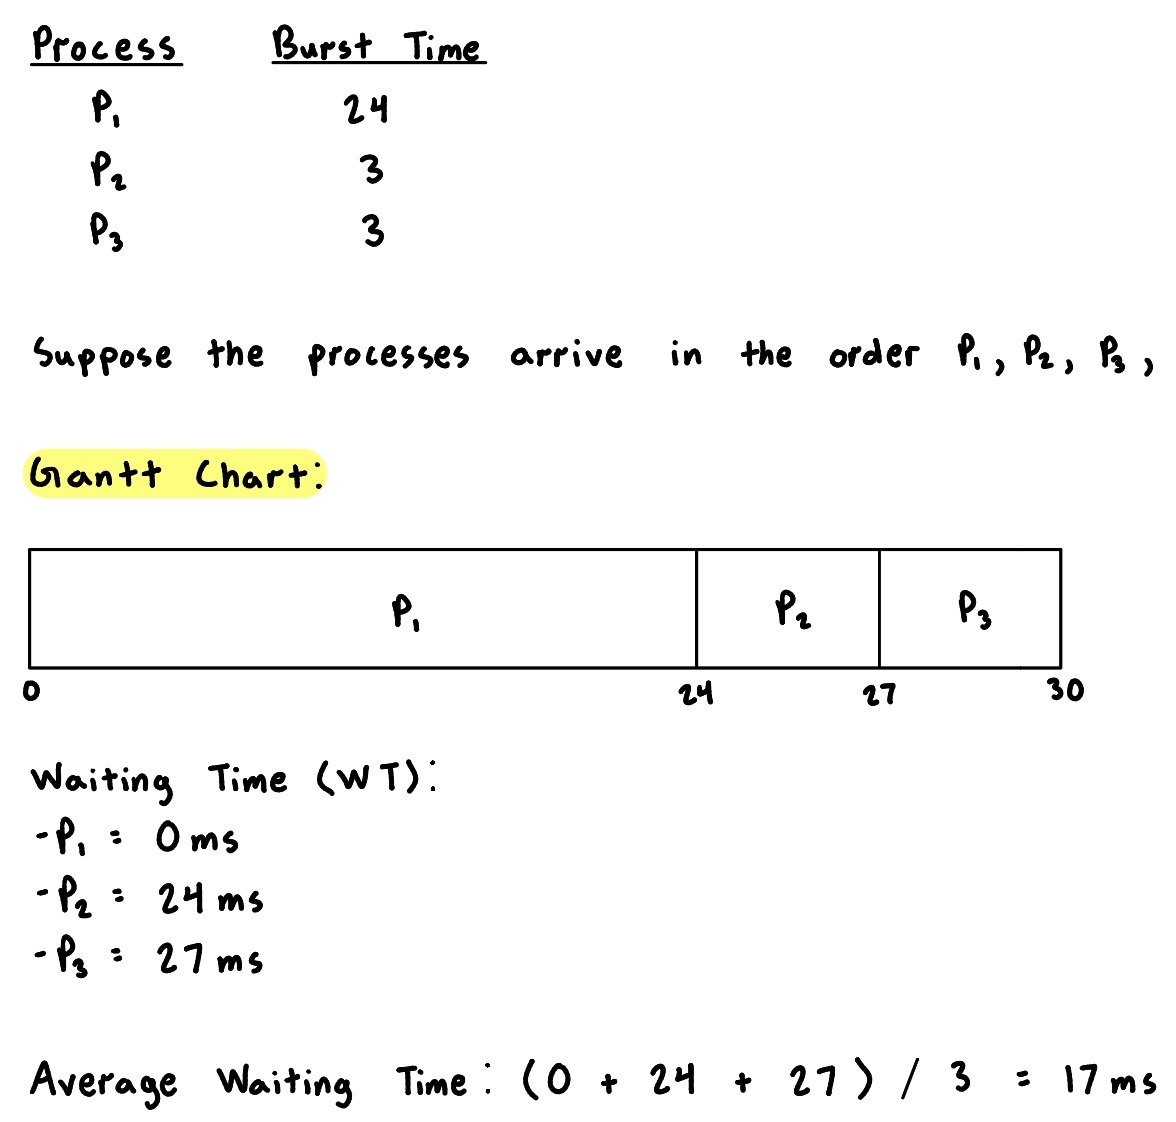 Process Burst Time
P₁ 24
P₂ 3
P₃ 3
Suppose the processes arrive in the order P₁, P₂, P₃,
Gantt Chart:
P₁ P₂ P₃
0 24 27 30
Waiting Time (WT):
-P₁ = 0ms
-P₂ = 24ms
-P₃ = 27ms
Average Waiting Time: (0 + 24 + 27) / 3 = 17ms